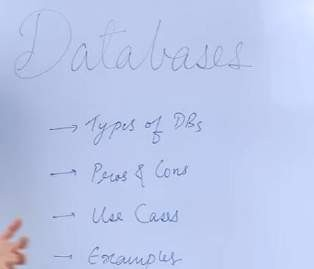 Databases
→ Types of DBs
→ Pros & Cons
→ Use Cases
→ Examples